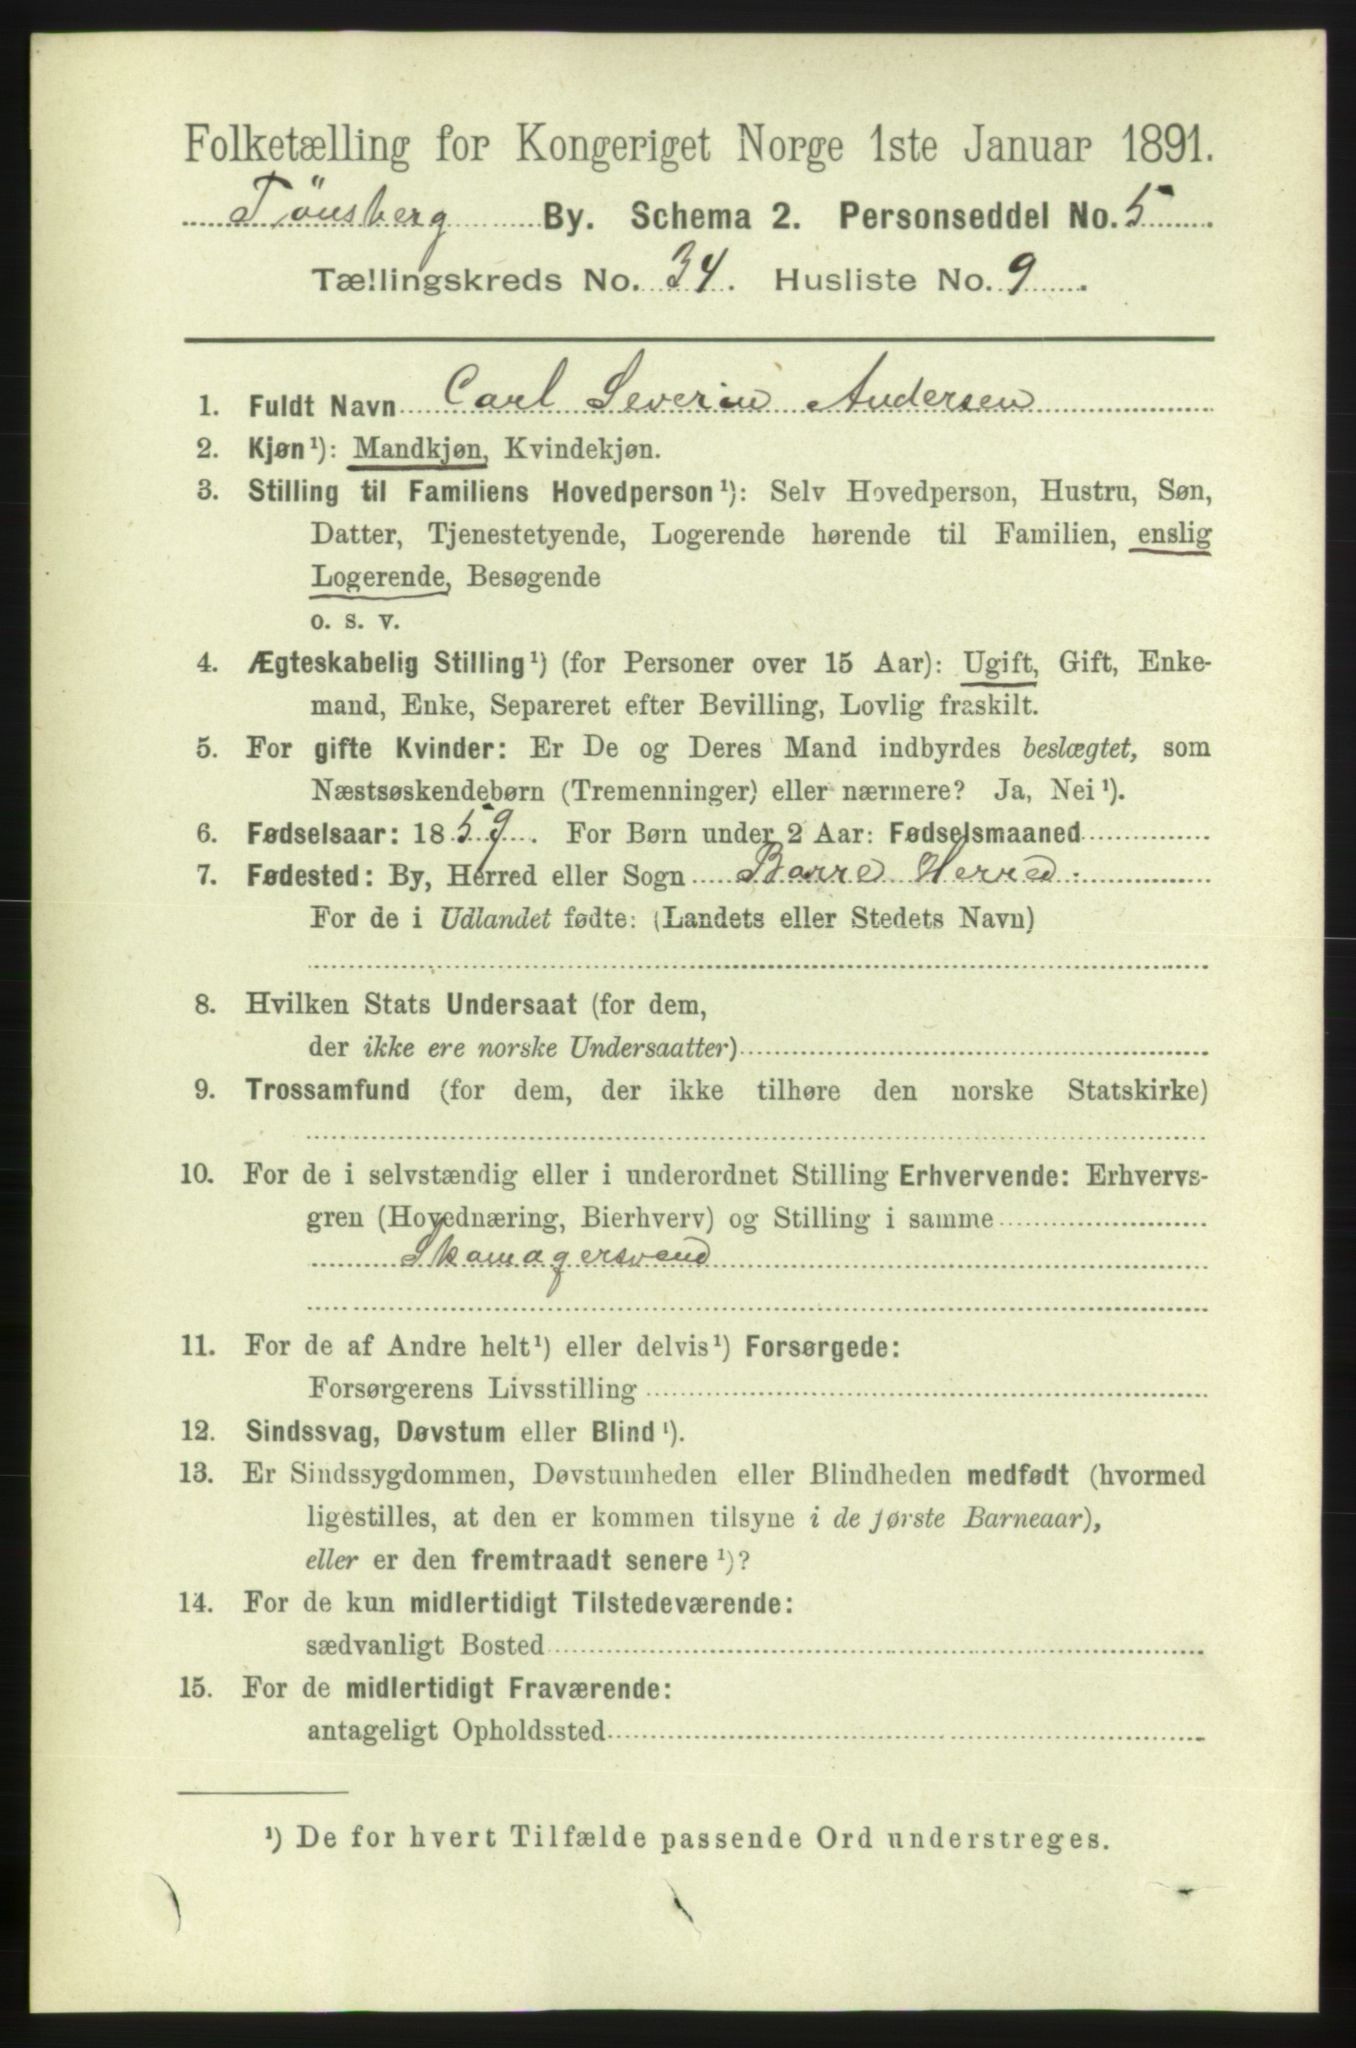 Folketælling for Kongeriget Norge 1ste Januar 1891.
Tönsberg By. Schema 2. Personseddel No. 5
Tællingskreds No. 34. Husliste No. 9.
1. Fuldt Navn Carl Severin Andersen
2. Kjøn¹): Mandkjøn, Kvindekjøn.
3. Stilling til Familiens Hovedperson¹): Selv Hovedperson, Hustru, Søn,
Datter, Tjenestetyende, Logerende hørende til Familien, enslig
Logerende, Besøgende
o. s. v.
4. Ægteskabelig Stilling¹) (for Personer over 15 Aar): Ugift, Gift, Enke-
mand, Enke, Separeret efter Bevilling, Lovlig fraskilt.
5. For gifte Kvinder: Er De og Deres Mand indbyrdes beslægtet, som
Næstsøskendebørn (Tremenninger) eller nærmere? Ja, Nei¹).
6. Fødselsaar: 1859. For Børn under 2 Aar: Fødselsmaaned
7. Fødested: By, Herred eller Sogn Borre Herred.
For de i Udlandet fødte: (Landets eller Stedets Navn)
8. Hvilken Stats Undersaat (for dem,
der ikke ere norske Undersaatter)
9. Trossamfund (for dem, der ikke tilhøre den norske Statskirke)
10. For de i selvstændig eller i underordnet Stilling Erhvervende: Erhvervs-
gren (Hovednæring, Bierhverv) og Stilling i samme
Skomagersvend
11. For de af Andre helt¹) eller delvis¹) Forsørgede:
Forsørgerens Livsstilling
12. Sindssvag, Døvstum eller Blind¹).
13. Er Sindssygdommen, Døvstumheden eller Blindheden medfødt (hvormed
ligestilles, at den er kommen tilsyne i de første Barneaar),
eller er den fremtraadt senere¹)?
14. For de kun midlertidigt Tilstedeværende:
sædvanligt Bosted
15. For de midlertidigt Fraværende:
antageligt Opholdssted
¹) De for hvert Tilfælde passende Ord understreges.